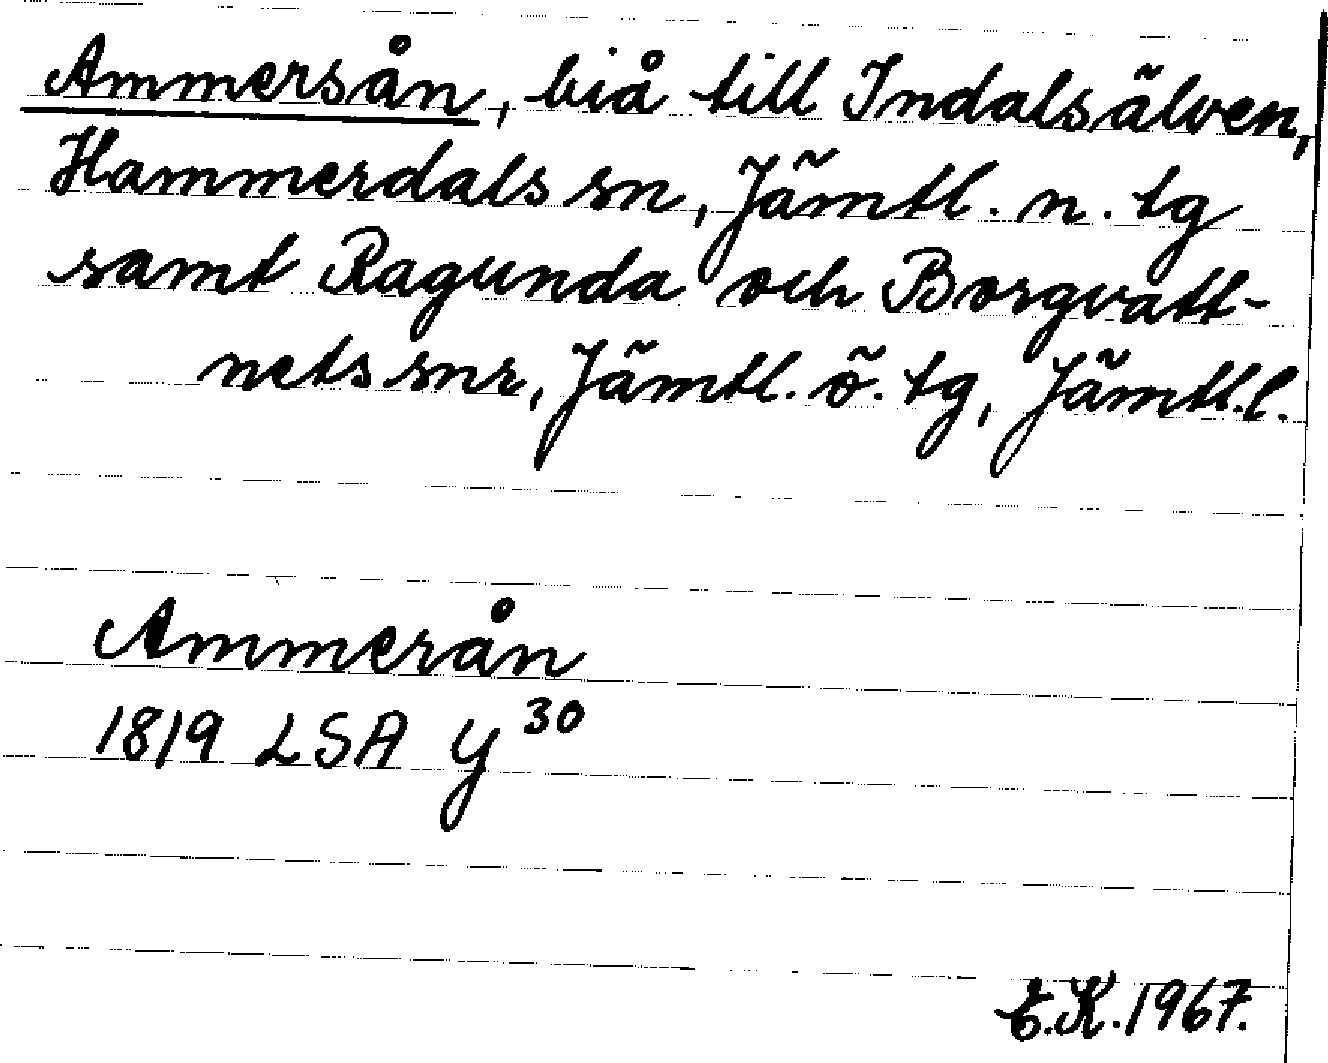 Ammersån, biå till Indalsälven,
Hammerdals sn, Jämtl. n. tg
samt Ragunda och Borgvatt-
nets snr, Jämtl. ö. tg, Jämtl.l.
Ammerån
1819 LSA Y 30
E.K. 1967.